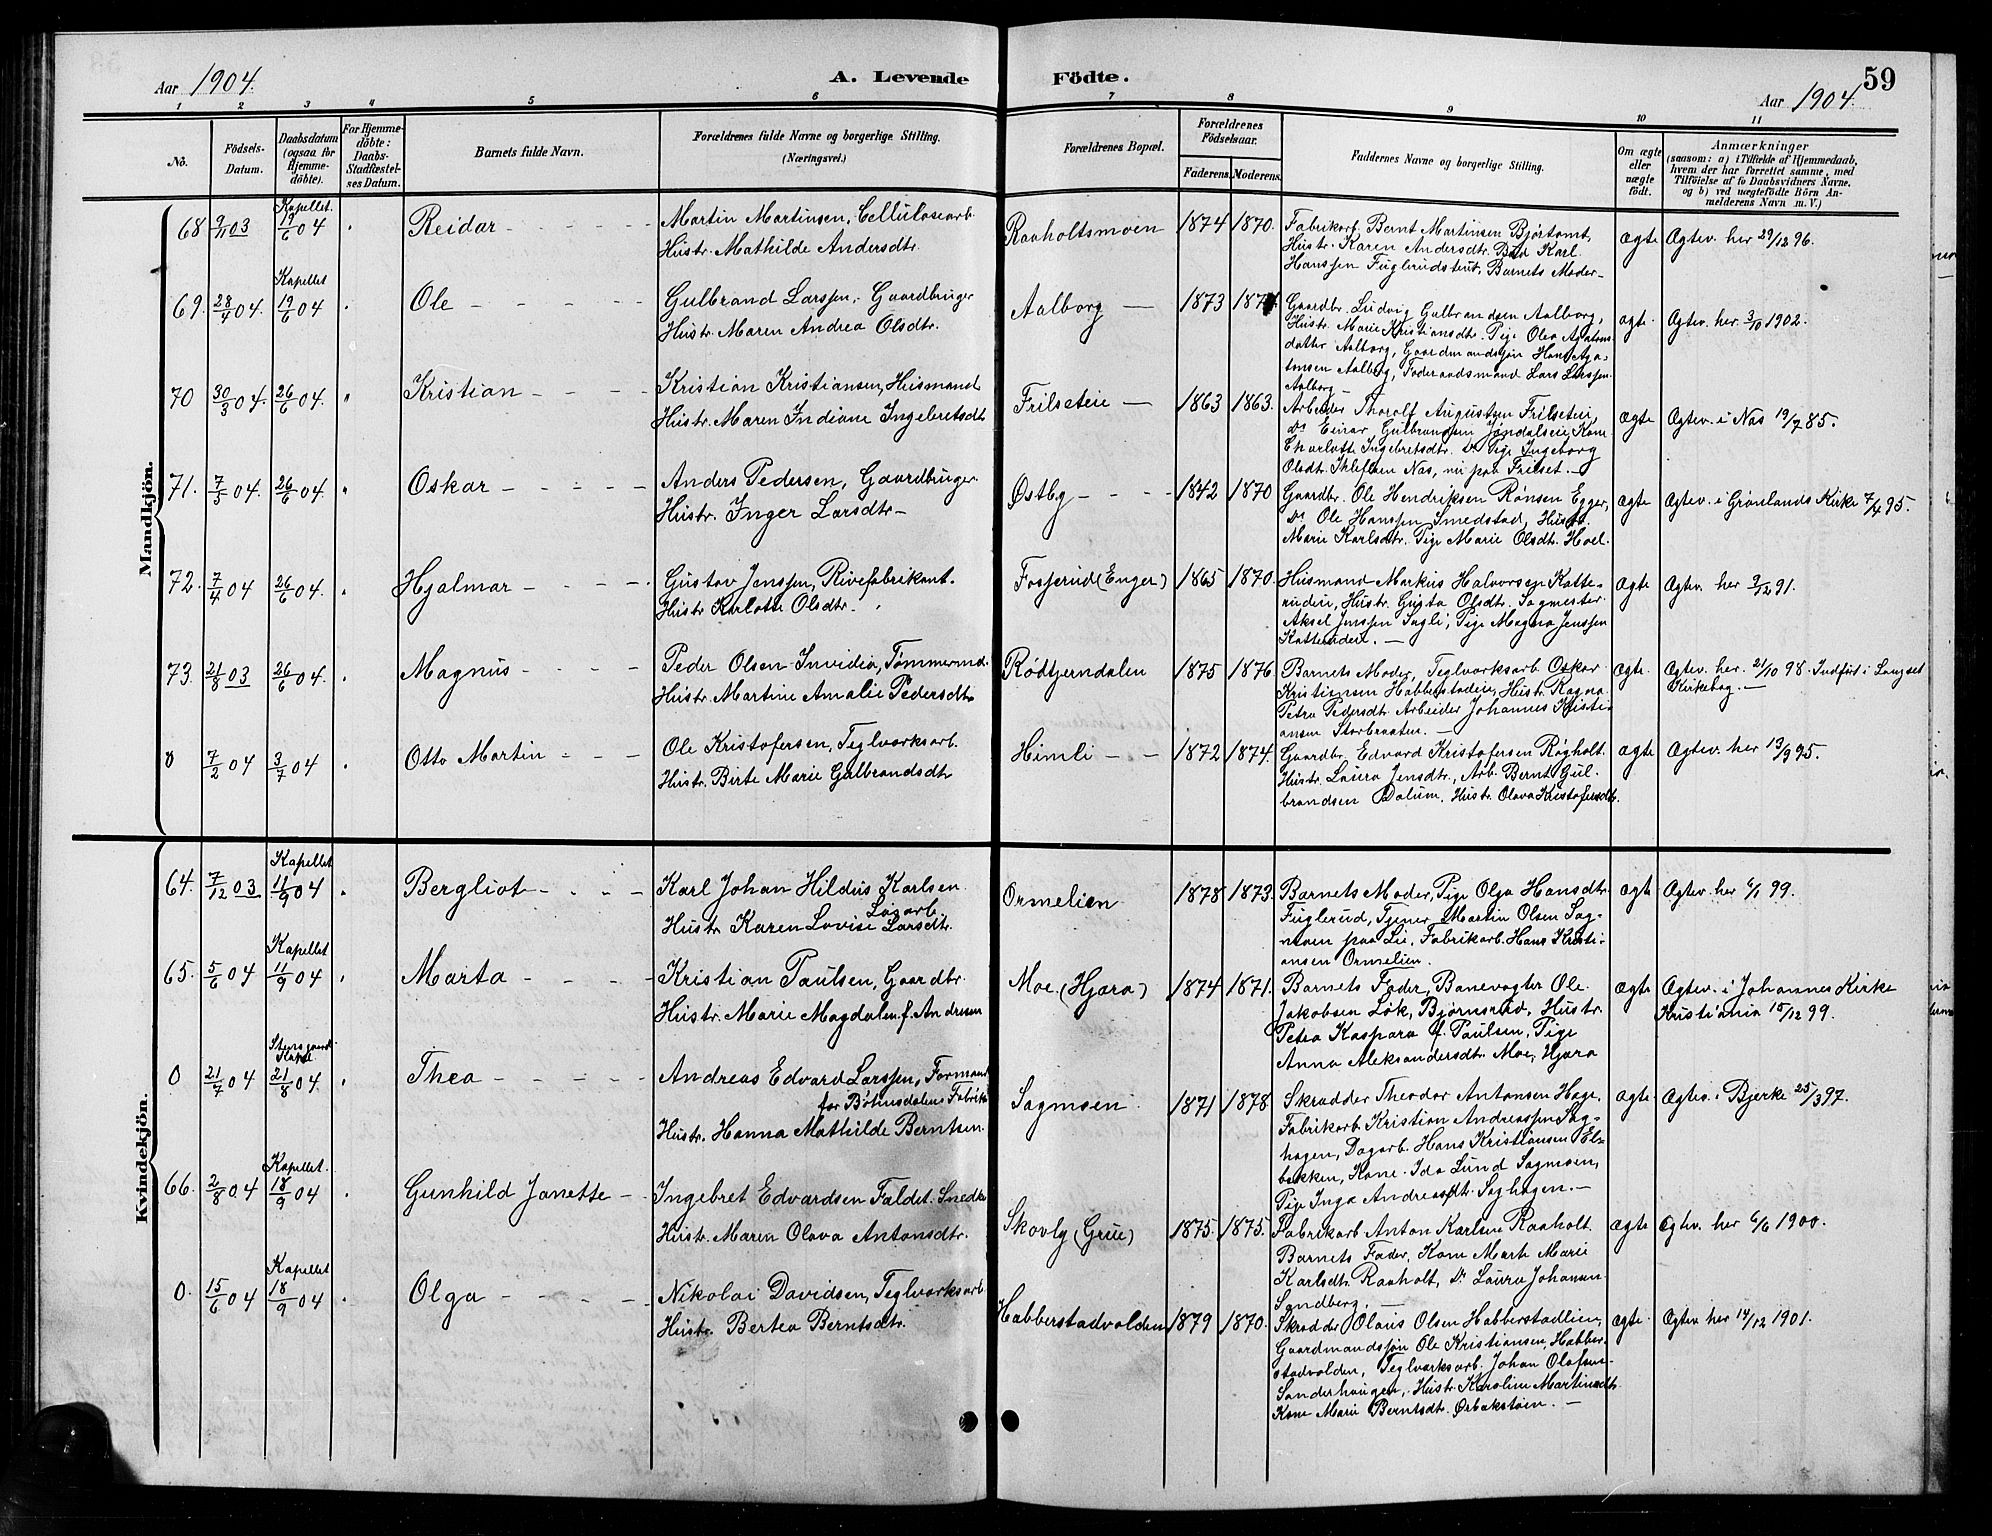 Aar 1904.
A. Levende Födte.
59
Aar 1904.
1 2 3 4 5 6 7 8 9 10 11
No.
Födsels-
Datum.
Daabsdatum
(ogsaa for
Hjemme-
döbte).
For Hjemme-
döbte:
Daabs-
Stadfæstel-
ses Datum.
Barnets fulde Navn.
Forældrenes fulde Navne og borgerlige Stilling.
(Næringsvei.)
Forældrenes Bopæl.
Forældrenes
Födselsaar.
Faderens. Moderens.
Faddernes Navne og borgerlige Stilling.
Om ægte
eller
uægte
födt.
Anmærkninger
(saasom: a) i Tilfælde af Hjemmedaab,
hvem der har forrettet samme, med
Tilföielse af to Daabsvidners Navne,
og b) ved uægtefödte Börn An-
melderens Navn m. V.)
Mandkjön.
68 9/11 03 Kapellet 19/6 04 Reidar
Martin Martinsen, Cellulosearb.
Hustr. Mathilde Andersdtr.
Raaholtsmoen 1874 1870.
Fabrikarb. Bernt Martinsen Bjørtomt,
Hustr. Karen Andersdtr. Bud Karl
Hanssen Fuglerudsteut, Barnets Moder
ægte Ægtev. her 29/12 96.
69. 28/4 04. Kapellet 19/6 04 Ole
Gulbrand Larssen, Gaardbruger
Hustr. Maren Andrea Olsdtr.
Aalborg 1873
Gaardbr. Ludvig Gulbrandsen Aalborg,
Hustr. Marie Kristiansdtr. Pige Olea Agatons
datter Aalborg, Gaardmandsøn Hans Aga-
tonsen Aalborg, Føderaadsmand Lars Larssen
Aalborg
ægte Ægtev. her 3/10 1902.
70 30/3 04. 26/6 04. Kristian
Kristian Kristiansen, Husmand
Hustr. Maren Indiane Ingebretsdtr
Frilseteie 1863 1863.
Arbeider Thorolf Augustsen Frilseteie,
Ds Einar Gulbrandsen Jøndalseie Kone
Charlotte Ingebretsdtr. Ds Pige Ingeborg
Olsdtr. Nas, nu paa Frilset.
ægte Ægtev. i Nas 19/7 85.
71. 7/5 04. 26/6 04. Oskar
Anders Pedersen, Gaardbruger
Hustr. Inger Larsdtr
Østby 1842 1870
Gaardbr. Ole Hendriksen Rønsen Egger,
Ds Ole Hanssen Smedstad, Hustr.
Marie Karlsdtr. Pige Marie Olsdtr. Hoel.
ægte Ægtev. i Grønlands Kirke 7/4 95.
72. 7/4 04 26/6 04. Hjalmar
Gustav Jenssen, Rivefabrikant.
Hustr. Karlotte Olsdtr.
Fosserud (Enger) 1865 1870.
Husmand Markus Halvorsen Katte-
rudeie, Hustr. Gusta Olsdtr. Sagmester
Aksel Jenssen Sagli, Pige Magna Jenssen
Katterudeie.
ægte Ægtev. her 2/12 91.
73. 21/8 03 26/6 04. Magnus
Peder Olsen Invidia, Tømmermd.
Hustr. Martine Amalie Pedersdtr
Rødtjerndalen 1875 1876
Barnets Moder, Teglværksarb. Oskar
Kristiansen Habberstadeie, Hustr. Ragna
Petra Pedersdtr. Arbeider Johannes Kristi-
ansen Storbraaten.
ægte. Ægtev. her. 21/10 98. Indført i Langset
Kirkebog.
0 7/2 04 3/7 04 Otto Martin
Ole Kristofersen, Teglværksarb.
Hustr. Birte Marie Gulbrandsdtr
Himli 1872 1874.
Gaardbr. Edvard Kristofersen Røgholt
Hustr. Laura Jensdtr., Arb. Bernt Gul-
brandsen Dalum, Hustr. Olava Kristofersdtr.
ægte Ægtev. her 13/9 95.
Kvindekjön.
64. 7/12 03 Kapellet 11/9 04 Bergliot
Karl Johan Hildus Karlsen
Løsarb.
Hustr. Karen Lovise Larsdtr.
Ormelien 1878 1873.
Barnets Moder, Pige Olga Hansdtr
Fuglerud, Tjener Martin Olsen Sag-
moen paa Lie, Fabrikarb. Hans Kristi-
ansen Ormelien.
ægte Ægtev. her 6/1 99.
65. 5/6 04 Kapellet 11/9 04 Marta
Kristian Paulsen, Gaardbr.
Hustr. Marie Magdalen f. Andresen
Moe (Hjæra) 1874 1871.
Barnets Fader, Banevogter Ole
Jakobsen Løk, Bjørnsrud, Hustr.
Petra Kaspara f. Paulsen, Pige
Anna Aleksandersdtr. Moe, Hjæra
ægte Ægtev. i Johannes Kirke
Kristiania 15/12 99.
0 21/7 04 Stensgaard Kapel 21/8 04. Thea
Andreas Edvard Larssen, Formand
for Bøhnsdalens Fabrik
Hustr. Hanna Mathilde Berntsen.
Sagmoen 1871 1878
Skrædder Theodor Antonsen Hage,
Fabrikarb. Kristian Andreassen Sag-
hagen, Dagarb. Hans Kristiansen El-
bekken, Kone Ida Lund Sagmoen,
Pige Inga Andreasdtr. Saghagen.
ægte Ægtev. i Bjerke 25/3 97.
66. 2/8 04 Kapellet. 18/9 04 Gunhild Janette
Ingebret Edvardsen Faldet. Snedker
Hustr. Maren Olava Antonsdtr.
Skovly (Grue) 1875. 1875.
Fabrikarb Anton Karlsen Raaholt.
Barnets Fader, Kone Marte Marie
Karlsdtr. Raaholt, Ds Laura Johansen
Sandberg.
ægte Ægtev. her 6/6 1900.
0. 15/6 04 Kapellet 18/9 04 Olga
Nikolai Davidsen, Teglværksarb.
Hustr. Bertea Berntsdtr.
Habberstadvolden 1879 1870.
Skrædder Olaus Olsen Habberstadlien,
Gaardmandssøn Ole Kristiansen, Habber-
stadvolden, Teglværksarb. Johan Olafsen
Sanderhaugen, Hustr. Karoline Martinsdtr
Kone Marie Berntsdtr. Ørbækstøen.
ægte. Ægtev her 14/12 1901.